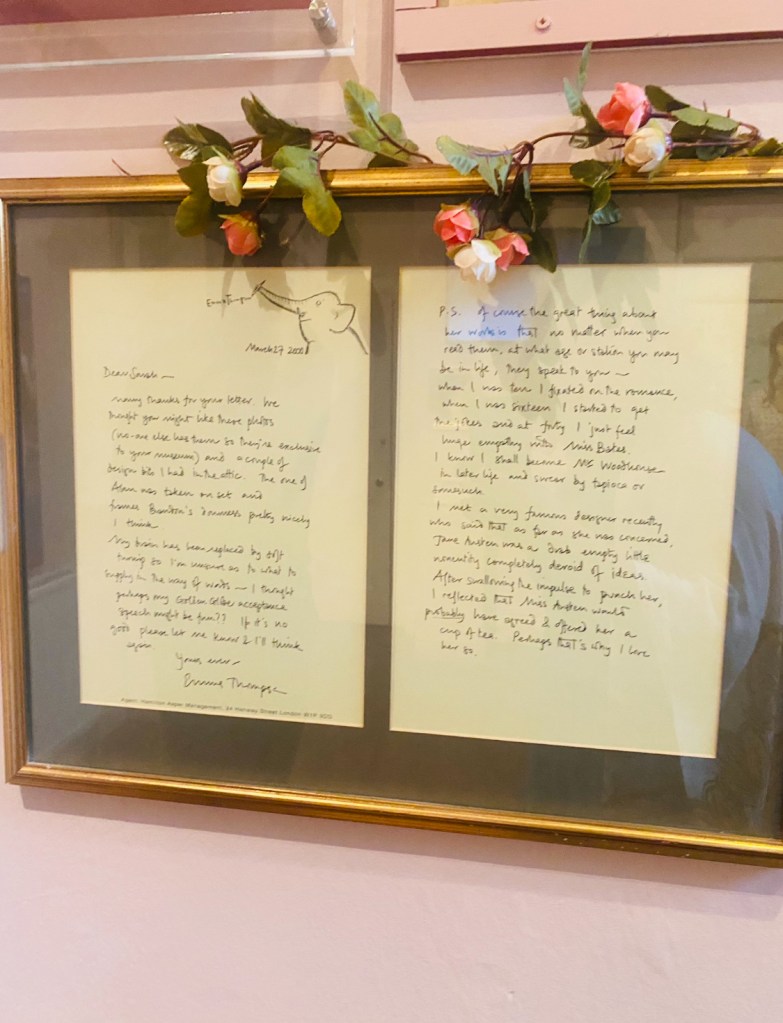 Emma Thompson
March 27 2000
Dear Sarah —
Many thanks for your letter. I've
thought you might like these photos
(no-one else has them so they're exclusive
to your museum) and a couple of
design bits I had in the attic. The one of
Alan was taken on set and
frames Brandon's loneliness pretty nicely
I think.
My brain has been replaced by
turnip so I'm unsure as to what to
supply in the way of words — I thought
perhaps my Golden Globe acceptance
speech might be fun?? If it's no
good please let me know & I'll think
again
Yours ever —
Emma Thompson
Agent: Hamilton Asper Management, 24 Hanway Street London W1P 9DD
P.S. Of course the great thing about
her works is that no matter when you
read them, at what age or station you may
be in life, they speak to you —
When I was ten I fixated on the romance,
when I was sixteen I started to get
the jokes and at forty I just feel
huge empathy with Miss Bates.
I know I shall become Mr Woodhouse
in later life and swear by tapioca or
somesuch.
I met a very famous designer recently
who said that as far as she was concerned,
Jane Austen was a drab empty little
nonentity completely devoid of ideas.
After swallowing the impulse to punch her,
I reflected that Miss Austen would
probably have agreed & offered her a
cup of tea. Perhaps that's why I love
her so.